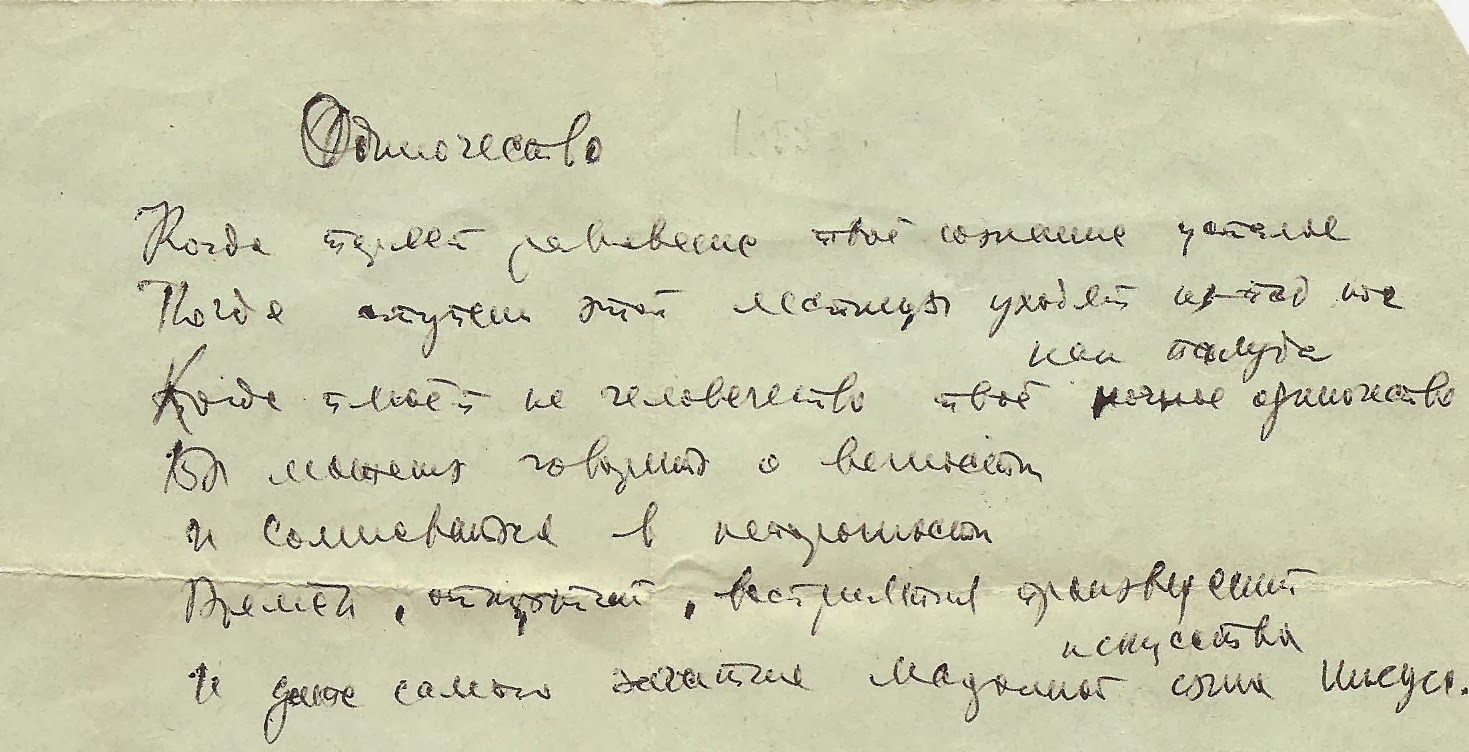 Одиночество
Когда теряет равновесие твоё сознание усталое
Когда ступени этой лестницы уходят из-под ног
как палуба
Когда плюёт на человечество твоё ночное одиночество
Ты можешь говорить о вечности
и сомневаться в непорочности
Времён, , восприятия произведений
искусства
И даже самого зачатия Мадонной сына Иисуса.